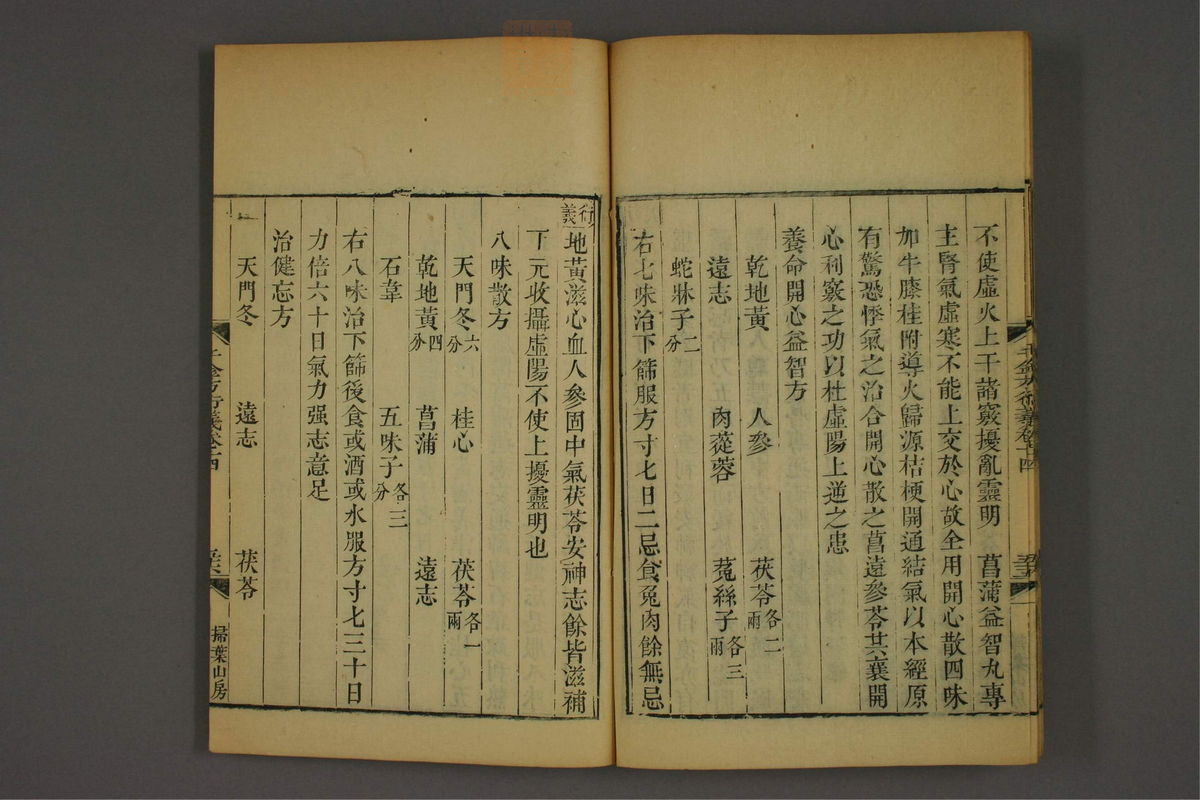 不使虛火上干諸竅擾亂靈明　菖蒲益智丸專
主腎氣虛寒不能上交於心故全用開心散四味
加牛膝桂附導火歸源桔梗開通結氣以本經原
有驚恐悸氣之治合開心散之菖遠參苓共襄開
心利竅之功以杜虛陽上逆之患
養命開心益智方
乾地黃　人參　茯苓各二兩
遠志　肉蓯蓉　菟絲子各三兩
蛇牀子二分
右七味治下篩服方寸匕日二忌食兔肉餘無忌
衍義地黃滋心血人參固中氣茯苓安神志餘皆滋補
下元收攝虛陽不使上擾靈明也
八味散方
天門冬六分　桂心　茯苓各一兩
乾地黃四分　菖蒲　遠志
石韋　五味子各三分
右八味治下篩後食或酒或水服方寸匕三十日
力倍六十日氣力强志意足
治健忘方
天門冬　遠志　茯苓
千金方衍義卷十四
掃葉山房